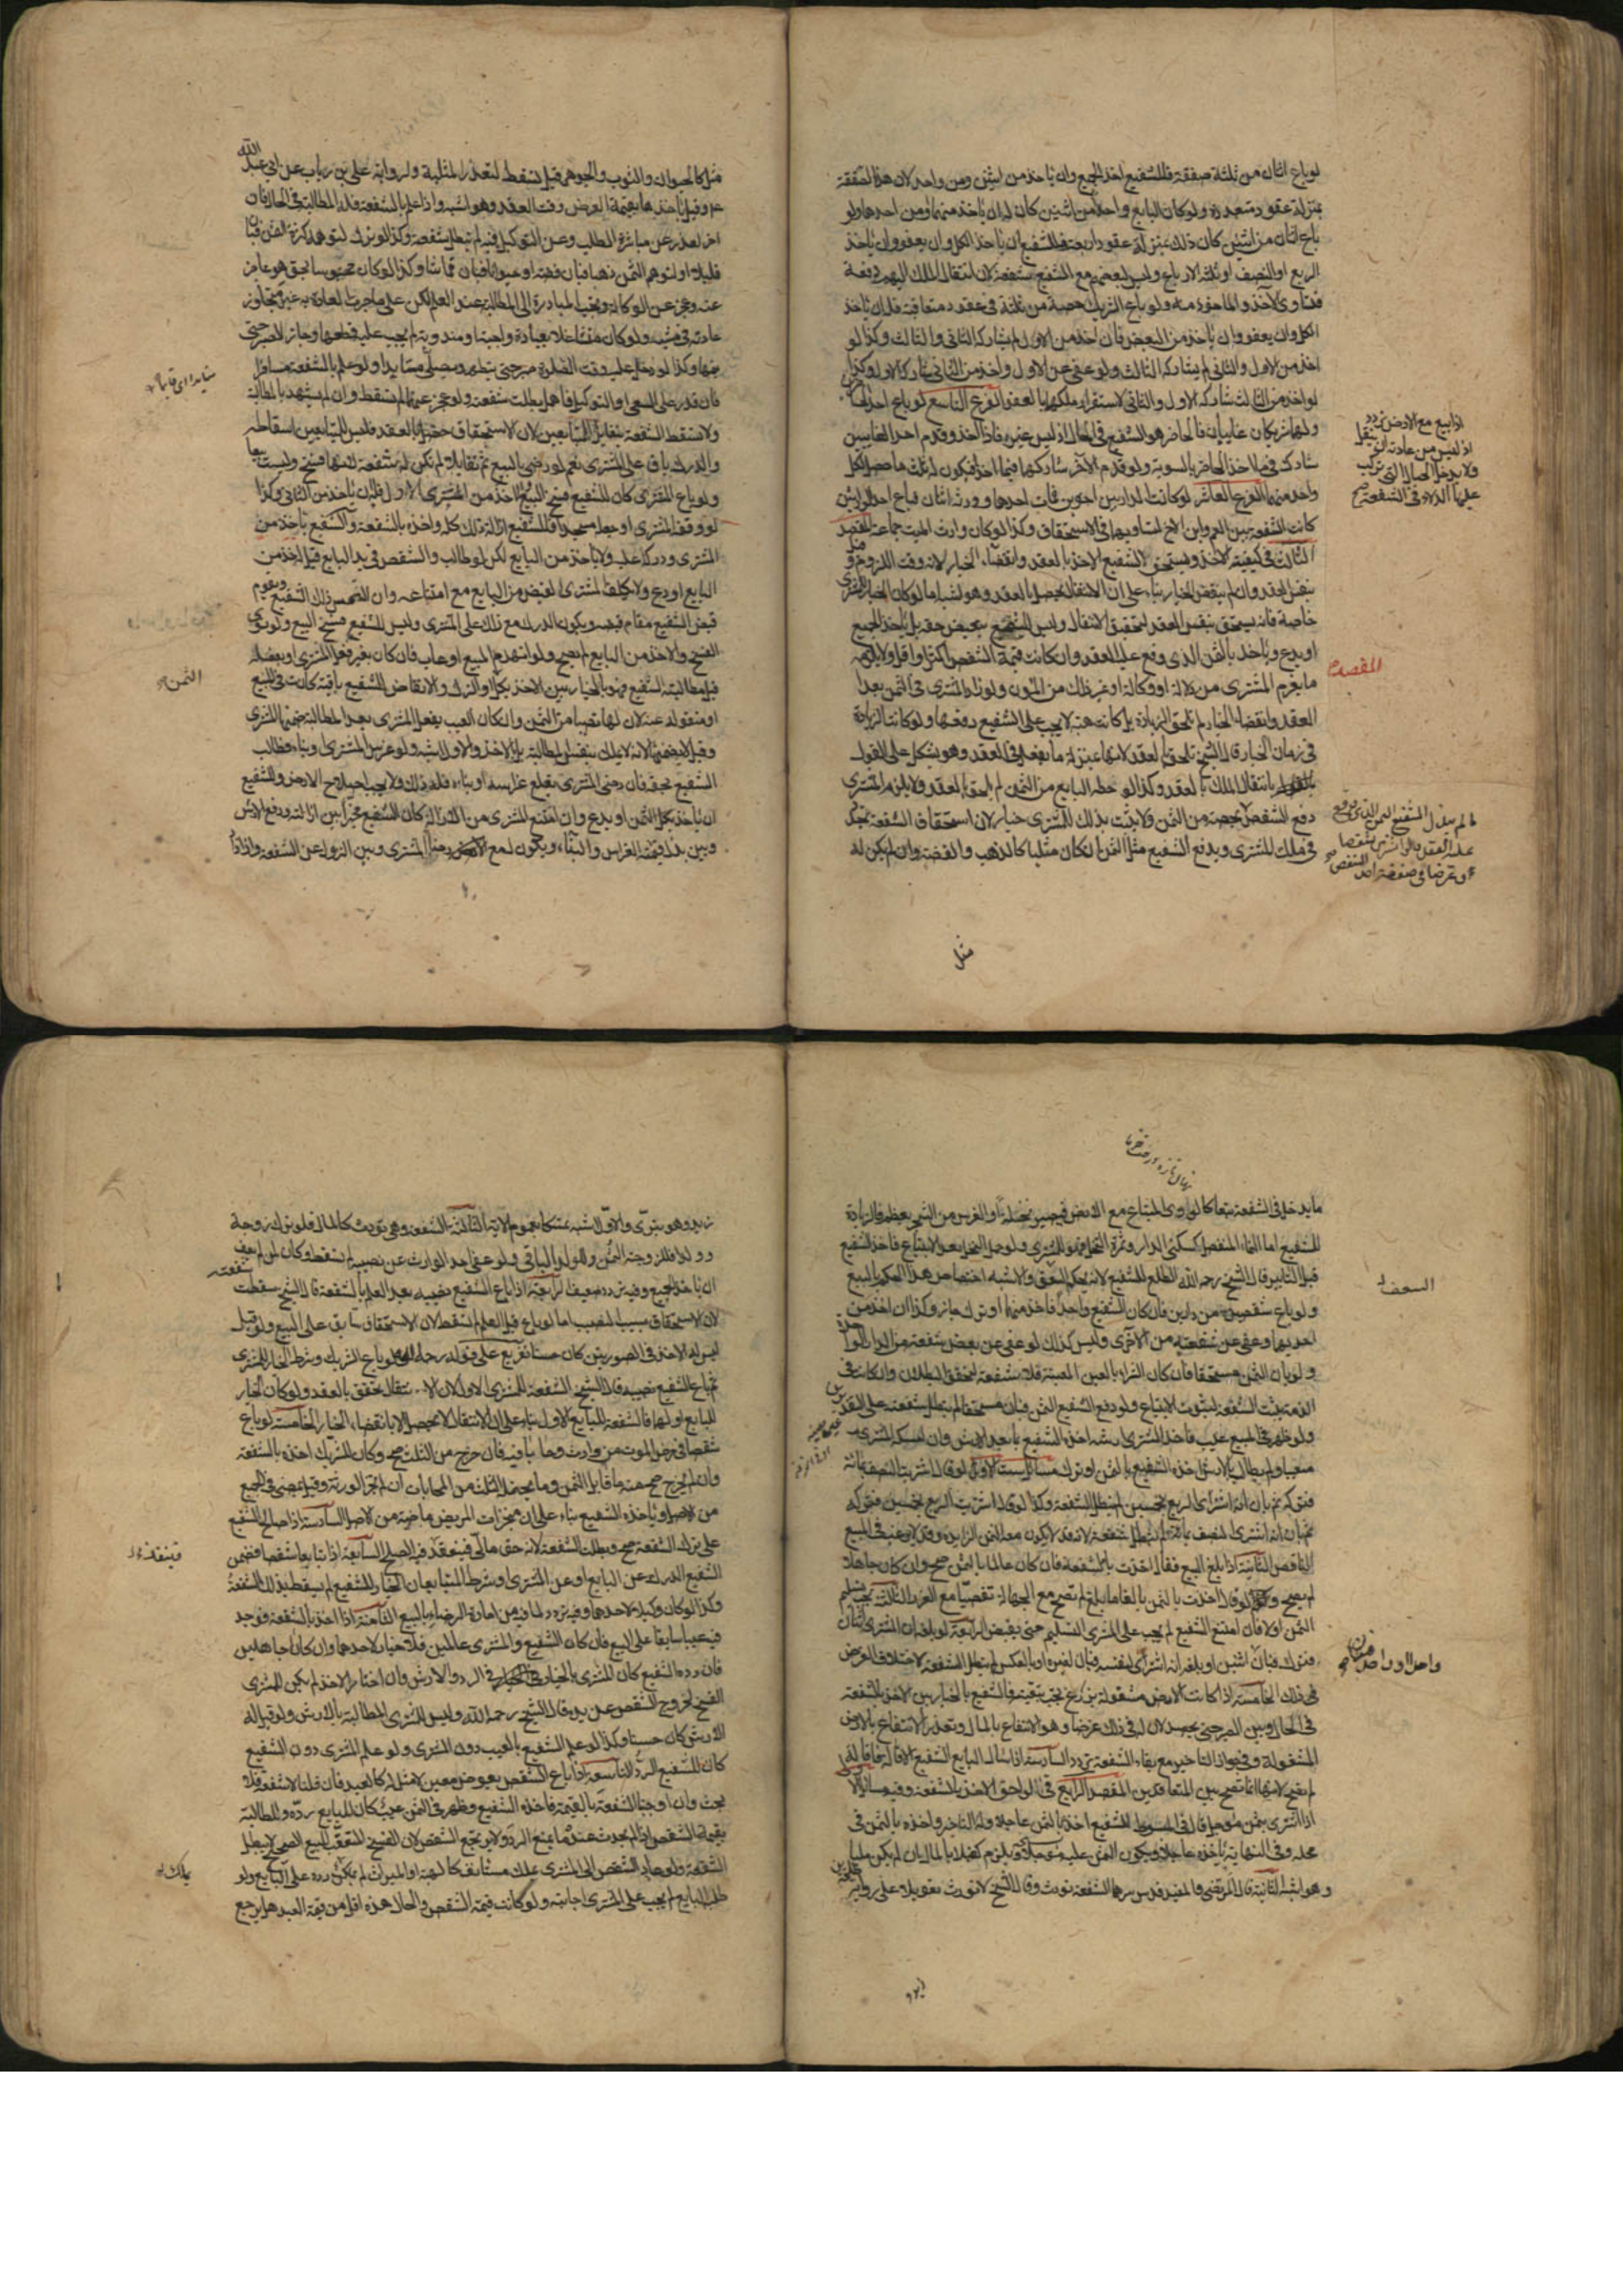 لو باع اثنان من ثلثة صفقة فللشفيع اخذ الجميع وان ياخذ من اثنين ومن واحد لان هذه الصفقة
بمنزلة عقود متعددة ولو كان البايع واحدا من اثنين كان له ان ياخذ منهما ومن احدهما ولو
باع اثنان من اثنين كان ذلك بمنزلة عقود اربعة فللشفيع ان ياخذ الكل وان يعفو وان ياخذ
الربع او النصف او ثلثة الارباع وليس لبعضهم مع الشفيع شفعة لان انتقال الملك اليهم دفعة
فتساوى الاخذ والماخوذ منه ولو باع الشريك حصة من ثلثة فى عقود متعاقبة فله ان ياخذ
الكل وان يعفو وان ياخذ من البعض فان اخذ من الاول لم يشاركه الثانى والثالث وكذا لو
اخذ من الاول والثانى لم يشاركه الثالث ولو عفى عن الاول واخذ من الثانى شاركه الاول وكذا
لو اخذ من الثالث شاركه الاول والثانى لاستقرار ملكهما بالعفو الفرع التاسع لو باع احد
ولهما شريكان غايبان فالحاضر هو الشفيع فى الحال اذ ليس غيره فاذا اخذ وقدم احد الغايبين
شاركه فيما اخذ الحاضر بالسوية ولو قدم الاخر شاركهما فيما اخذا فيكون له ثلث ما حصل لكل
واحد منهما الفرع العاشر لو كانت الدار بين اخوين فمات احدهما وورثه اثنان فباع احد الوارثين
كانت الشفعة بين العم وابن الاخ لتساويهما فى الاستحقاق وكذا لو كان وارث الميت جماعة المقصد
الثالث فى كيفية الاخذ ويستحق الشفيع الاخذ بالعقد وانقضاء الخيار لانه وقت اللزوم و
بنفس العقد وان لم ينقض الخيار بناء على ان الانتقال يحصل بالعقد وهو اشبه اما لو كان الخيار للمشترى
خاصة فانه يستحق بنفس العقد لتحقق الانتقال وليس للشفيع تبعيض حقه بل ياخذ الجميع
او يدع وياخذ بالثمن الذى وقع عليه العقد وان كانت قيمة الشقص اكثر او اقل ولا يلزمه
ما يغرم المشترى من دلالة او وكالة او غير ذلك من المؤن ولو زاد المشترى فى الثمن بعد
العقد وانقضاء الخيار لم تلحق الزيادة بل كانت هبة لا يجب على الشفيع دفعها ولو كانت الزيادة
فى زمان الخيار قال الشيخ تلحق بالعقد لانها بمنزلة ما يفعل فى العقد وهو يشكل على القول
بانتقال الملك بالعقد وكذا لو حط البايع من الثمن لم يلحق بالعقد ولا يلزم المشترى
دفع الشقص
فى ملك المشترى ويدفع الشفيع مثل الثمن ان كان مثليا كالذهب والفضة وان لم يكن له
مثل
اذا بيع مع الارض
المقصد
مثل كالحيوان والثوب والجوهر قيل تسقط لتعذر المثلية ولرواية على بن رياب عن ابى عبد الله
ع وقيل ياخذها بقيمة العرض وقت العقد وهو اشبه واذا علم بالشفعة فله المطالبة فى الحال فان
اخر لعذر عن مباشرة الطلب وعن التوكيل فيه لم تبطل شفعته وكذا لو ترك لتوهمه كثرة الثمن فبان
قليلا او لتوهم الثمن ذهبا فبان فضة او حيوانا فبان قماشا وكذا لو كان محبوسا بحق هو عاجز
عنه وعجز عن الوكالة ويجب المبادرة الى المطالبة عند العلم لكن على ما جرت العادة به غير متجاوز
عادته فى مشيه ولو كان متشاغلا بعبادة واجبة او مندوبة لم يجب عليه قطعها وجاز الصبر حتى
يتمها وكذا لو دخل عليه وقت الصلوة صبر حتى يتطهر ويصلى متايدا ولو علم بالشفعة مسافرا
فان قدر على السعى او التوكيل فاهمل بطلت شفعته ولو عجز عنهما لم تسقط وان لم يشهد بالمطالبة
ولا تسقط الشفعة بتقايل المتبايعين لان الاستحقاق حصل بالعقد فليس للمتبايعين اسقاطه
والدرك باق على المشترى نعم لو رضى بالبيع ثم تقايلا لم تكن له شفعة لانها فسخ وليست بيعا
ولو باع المشترى كان للشفيع فسخ البيع والاخذ من المشترى الاول وله ان ياخذ من الثانى وكذا
لو وقفه المشترى او جعله مسجدا فللشفيع ازالة ذلك كله واخذه بالشفعة والشفيع ياخذ من
المشترى ودركه عليه ولا ياخذ من البايع لكن لو طالب والشقص فى يد البايع قيل له خذ من
البايع او دع ولا يكلف المشترى القبض من البايع مع امتناعه وان التمس ذلك الشفيع ويقوم
قبض الشفيع مقام قبضه ويكون الدرك مع ذلك على المشترى وليس للشفيع فسخ البيع ولو نوى
الفسخ والاخذ من البايع لم يصح ولو انهدم المبيع او عاب فان كان بغير فعل المشترى او بفعله
قبل مطالبة الشفيع فهو بالخيار بين الاخذ بكل الثمن او الترك والانقاض للشفيع باقية كانت فى المبيع
او منقولة عنه لان لها نصيبا من الثمن وان كان العيب بفعل المشترى بعد المطالبة ضمنها المشترى
وقيل لا يضمنها لانه لا يملك بنفس المطالبة بل بالاخذ والاول اشبه ولو غرس المشترى او بنى وطالب
الشفيع بحقه فان رضى المشترى بقلع غراسه او بناءه فله ذلك ولا يجب اصلاح الارض وللشفيع
ان ياخذ بكل الثمن او يدع وان امتنع المشترى من الازالة كان الشفيع مخيرا بين ازالته ودفع الارش
وبين بذل قيمة الغراس والبناء ويكون له مع رضا المشترى وبين النزول عن الشفعة واذا زاد
الثمن
ما يدخل فى الشفعة تبعا كالودى المبتاع مع الارض فيصير نخلا او الغرس من الشجر يعظم فالزيادة
للشفيع اما النماء المنفصل كسكنى الدار وثمرة النخل فهو للمشترى ولو حمل النخل بعد الابتياع فاخذ الشفيع
قبل التابير قال الشيخ رحمه الله الطلع للشفيع لانه بحكم السعف والاشبه اختصاص هذا الحكم بالبيع
ولو باع شقصين من دارين فان كان الشفيع واحدا فاخذ منهما او ترك جاز وكذا ان اخذ من
احديهما وعفى عن شفعته من الاخرى وليس كذلك لو عفى عن بعض شفعته من الدار الواحدة
ولو بان الثمن مستحقا فان كان الشراء بالعين المعينة فلا شفعة لتحقق البطلان وان كان فى
الذمة ثبتت الشفعة لثبوت الابتياع ولو دفع الشفيع الثمن فبان مستحقا لم تبطل شفعته على التقديرين
ولو ظهر فى المبيع عيب فاخذ المشترى ارشه اخذه الشفيع بما بعد الارش وان امسكه المشترى
معيبا ولم يطالب بالارش اخذه الشفيع بالثمن او ترك مسائل ست الاولى لو قال اشتريت النصف بمائة
فترك ثم بان انه اشترى الربع بخمسين لم تبطل الشفعة وكذا لو قال اشتريت الربع بخمسين فترك
ثم بان انه اشترى النصف بمائة لم تبطل شفعته لانه قد لا يكون معه الثمن الزايد وقد لا يرغب فى المبيع
الناقص الثانية اذا بلغه البيع فقال اخذت بالشفعة فان كان عالما بالثمن صح وان كان جاهلا
لم يصح وكذا لو قال اخذت بالثمن بالغا ما بلغ لم يصح مع الجهالة تفصيا من الغرر الثالثة يجب تسليم
الثمن اولا فان امتنع الشفيع لم يجب على المشترى التسليم حتى يقبض الرابعة لو بلغه ان المشترى اثنان
فترك فبان اثنين او بلغه انه اشترى لنفسه فبان لغيره او بالعكس لم تبطل الشفعة لاختلاف الغرض
فى ذلك الخامسة اذا كانت الارض مشغولة بزرع يجب تبقيته فالشفيع بالخيار بين الاخذ بالشفعة
فى الحال وبين الصبر حتى يحصد لان له فى ذلك غرضا وهو الانتفاع بالمال وتعذر الانتفاع بالارض
المشغولة وفى جواز التاخير مع بقاء الشفعة تردد السادسة اذا سال البايع الشفيع الاقالة فاقاله
لم تصح لانها انما تصح بين المتعاقدين المقصد الرابع فى لواحق الاخذ بالشفعة وفيه مسائل الاولى
اذا اشترى بثمن موجل قال فى المبسوط للشفيع اخذه بالثمن عاجلا وله التاخير واخذه بالثمن فى
محله وفى النهاية ياخذه عاجلا ويكون الثمن عليه موجلا ويلزم كفيلا بالمال ان لم يكن مليا
وهو اشبه الثانية قال المرتضى والمفيد قدس سرهما الشفعة تورث وقال الشيخ لا تورث تعويلا على رواية
السعف
زيد وهو بترى والاول اشبه تمسكا بعموم الاية الثالثة الشفعة وهى تورث كالمال فلو ترك زوجة
وولدا فللزوجة الثمن وللولد الباقى ولو عفى احد الوراث عن نصيبه لم تسقط وكان لمن لم يعف
ان ياخذ الجميع وفيه تردد ضعيف الرابعة اذا باع الشفيع نصيبه بعد العلم بالشفعة قال الشيخ سقطت شفعته
لان الاستحقاق بسبب النصيب اما لو باع قبل العلم لم تسقط لان الاستحقاق سابق على البيع ولو قيل
ليس له الاخذ فى الصورتين كان حسنا تفريع على قوله رحمه الله لو باع الشريك وشرط الخيار للمشترى
ثم باع الشفيع نصيبه قال الشيخ الشفعة للمشترى الاول لان الانتقال تحقق بالعقد ولو كان الخيار
للبايع او لهما فالشفعة للبايع الاول بناء على ان الانتقال لا يحصل الا بانقضاء الخيار الخامسة لو باع
شقصا فى مرض الموت من وارث وحابا فيه فان خرج من الثلث صح وكان للشريك اخذه بالشفعة
وان لم يخرج صح منه ما قابل الثمن وما يحتمله الثلث من المحابات ان لم تجز الورثة وقيل يمضى فى الجميع
من الاصل وياخذه الشفيع بناء على ان منجزات المريض ماضية من الاصل السادسة اذا صالح الشفيع
على ترك الشفعة صح وبطلت الشفعة لانه حق مالى فينعقد فيه الصلح السابعة اذا تبايعا شقصا فضمن
الشفيع الدرك عن البايع او عن المشترى او شرط المتبايعان الخيار للشفيع لم يسقط بذلك الشفعة
وكذا لو كان وكيلا لاحدهما وفيه تردد لما فيه من امارة الرضاء بالبيع الثامنة اذا اخذ بالشفعة فوجد
فيه عيبا سابقا على البيع فان كان الشفيع والمشترى عالمين فلا خيار لاحدهما وان كانا جاهلين
فان رده الشفيع كان المشترى بالخيار فى الرد والارش وان اختار الاخذ لم يكن للمشترى
الفسخ لخروج الشقص عن يده قال الشيخ رحمه الله وليس للمشترى المطالبة بالارش ولو قيل له
الارش كان حسنا وكذا لو علم الشفيع بالعيب دون المشترى ولو علم المشترى دون الشفيع
كان للشفيع الرد التاسعة اذا باع الشقص بعوض معين لا مثل له كالعبد فان قلنا لا شفعة فلا
بحث وان اوجبنا الشفعة بالقيمة فاخذه الشفيع وظهر فى الثمن عيب كان للبايع رده والمطالبة
بقيمة الشقص اذا لم يحدث عنده ما يمنع الرد ولا يرتجع الشقص لان الفسخ المتعقب للبيع الصحيح لا يبطل
الشفعة ولو عاد الشقص الى المشترى بملك مستانف كالهبة او الميراث لم يملك رده على البايع ولو
طلبه البايع لم يجب على المشترى اجابته ولو كانت قيمة الشقص والحال هذه اقل من قيمة العبد هل يرجع